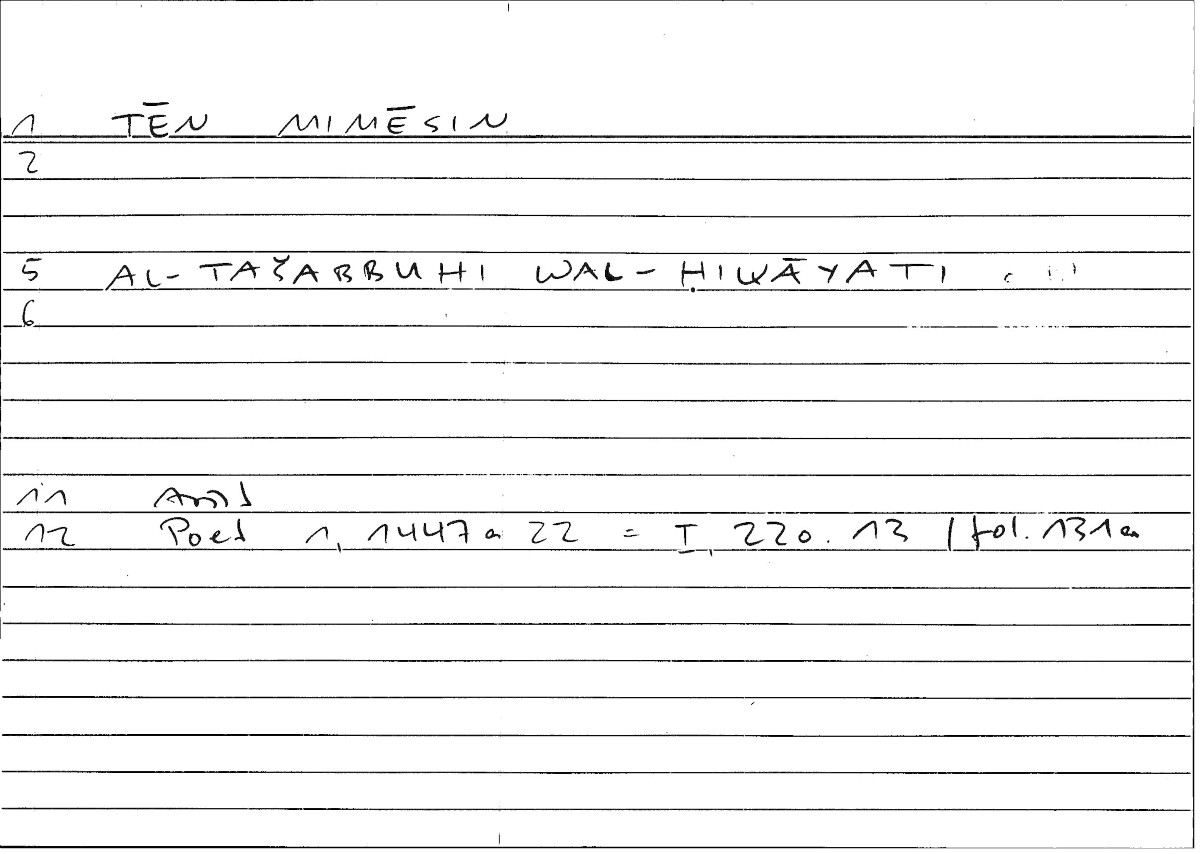 1 TĒN MIMĒSIN
2
5 AL-TAŠABBUHI WAL-ḤIKĀYATI
6
11 Arist
12 Poet 1, 1447a 22 = I, 220.13 / fol. 131a